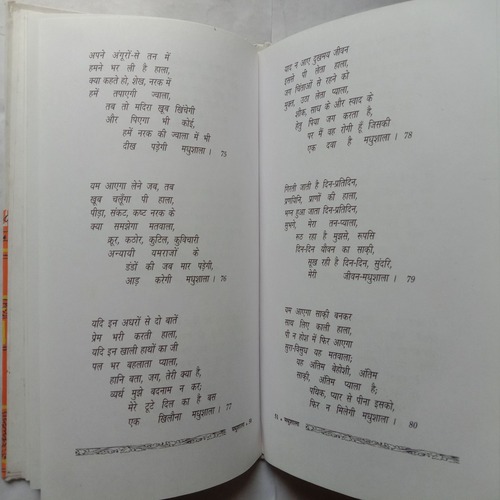 अपने अंगूरों-से तन में
हमने भर ली है हाला,
क्या कहते हो, शेख, नरक में
हमें तपाएगी ज्वाला,
तब तो मदिरा खूब खिंचेगी
और पिएगा भी कोई,
हमें नरक की ज्वाला में भी
दीख पड़ेगी मधुशाला। 75
यम आएगा लेने जब, तब
खूब चलूँगा पी हाला,
पीड़ा, संकट, कष्ट नरक के
क्या समझेगा मतवाला,
क्रूर, कठोर, कुटिल, कुविचारी
अन्यायी यमराजों के
डंडों की जब मार पड़ेगी,
आड़ करेगी मधुशाला। 76
यदि इन अधरों से दो बातें
प्रेम भरी करती हाला,
यदि इन खाली हाथों का जी
पल भर बहलाता प्याला,
हानि बता, जग, तेरी क्या है,
व्यर्थ मुझे बदनाम न कर;
मेरे टूटे दिल का है बस
एक खिलौना मधुशाला। 77
मधुशाला •
याद न आए दुखमय जीवन
इससे पी लेता हाला,
जग चिंताओं से रहने को
मुक्त, उठा लेता प्याला,
शौक, साध के और स्वाद के
हेतु पिया जग करता है,
पर मैं वह रोगी हूँ जिसकी
एक दवा है मधुशाला। 78
गिरती जाती है दिन-प्रतिदिन,
प्रणयिनि, प्राणों की हाला,
भग्न हुआ जाता दिन-प्रतिदिन,
सुभगे, मेरा तन-प्याला,
रूठ रहा है मुझसे, रूपसि
दिन-दिन यौवन का साक़ी,
सूख रही है दिन-दिन, सुंदरि,
मेरी जीवन-मधुशाला। 79
यम आएगा साक़ी बनकर
साथ लिए काली हाला,
पी न होश में फिर आएगा
सुरा-विसुध यह मतवाला;
यह अंतिम बेहोशी, अंतिम
साक़ी, अंतिम प्याला है;
पथिक, प्यार से पीना इसको,
फिर न मिलेगी मधुशाला। 80
• मधुशाला